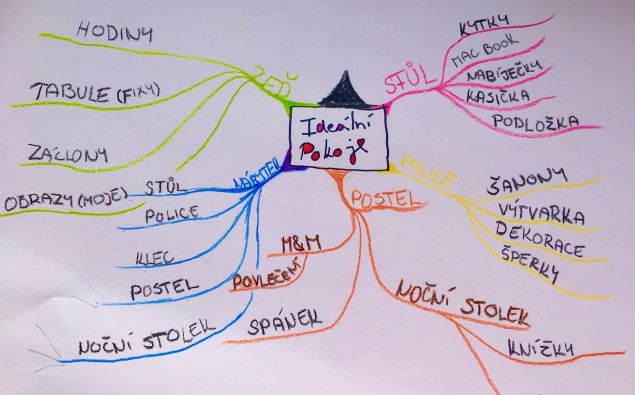 Ideální
Pokoje
ZEĎ
HODINY
TABULE (FIXY)
ZÁCLONY
OBRAZY (MOJE)
STŮL
KYTKY
MAC BOOK
NABÍJEČKY
KASIČKA
PODLOŽKA
POLICE
ŠANONY
VÝTVARKA
DEKORACE
ŠPERKY
POSTEL
M&M
POVLEČENÍ
SPÁNEK
NOČNÍ STOLEK
KNÍŽKY
NÁBYTEK
STŮL
POLICE
KLEC
POSTEL
NOČNÍ STOLEK